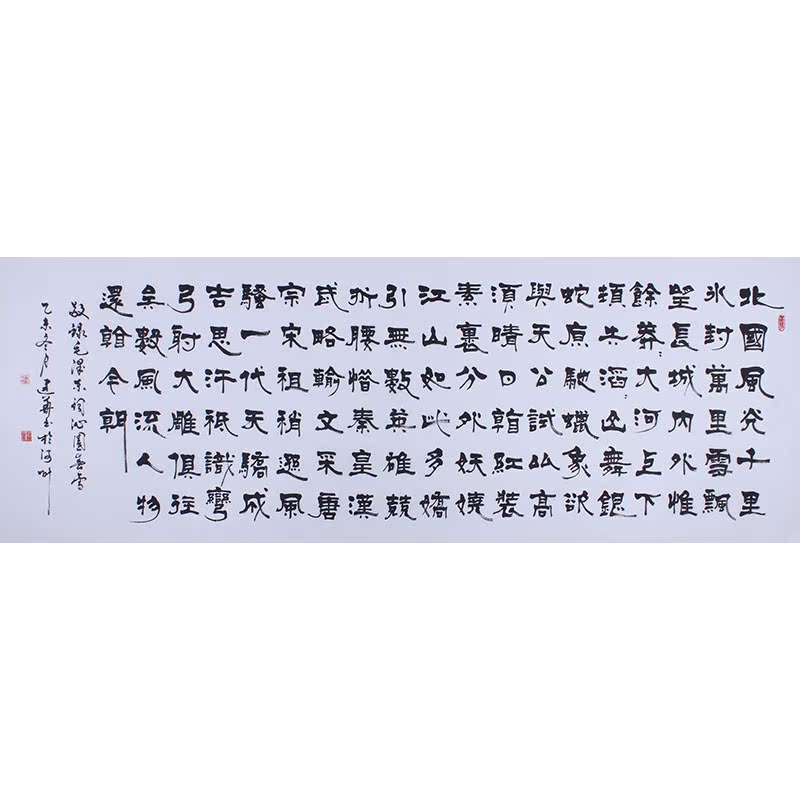 北國風光千里
冰封萬里雪飄
望長城內外惟
餘莽〻大河上下
頓失滔〻山舞銀
蛇原馳蠟象欲
與天公試比高
須晴日看紅裝
素裹分外妖嬈
江山如此多嬌
引無數英雄競
折腰惜秦皇漢
武略輸文采唐
宗宋祖稍遜風
騷一代天驕成
吉思汗祇識彎
弓射大雕俱往
矣數風流人物
還看今朝
敬錄毛澤東詞沁園春雪
乙未冬月建華書於河州